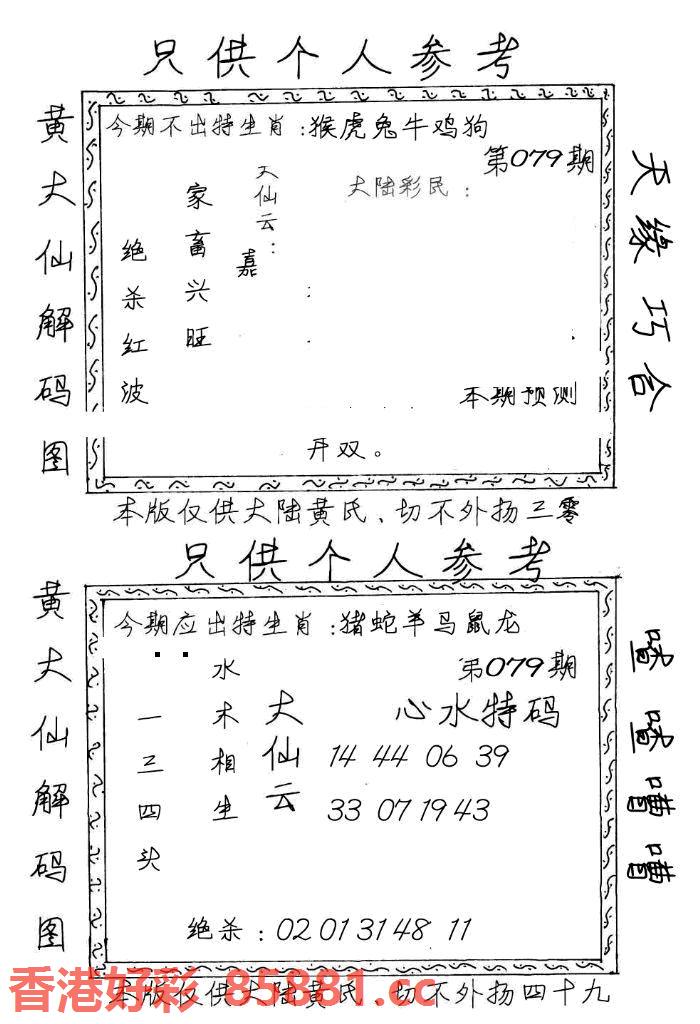 只供个人参考
黄大仙解码图
今期不出特生肖：猴虎兔牛鸡狗
第079期
天缘巧合
大陆彩民：
大仙云：
嘉
家畜兴旺
绝杀红波
本期预测
开双。
本版仅供大陆黄氏、切不外扬三零
只供个人参考
黄大仙解码图
今期应出特生肖：猪蛇羊马鼠龙
第079期
心水特码
大仙云
水木相生
一三四头
14 44 06 39
33 07 19 43
绝杀：02 01 31 48 11
本版仅供大陆黄氏、切不外扬四十九
香港好彩 85881.cc